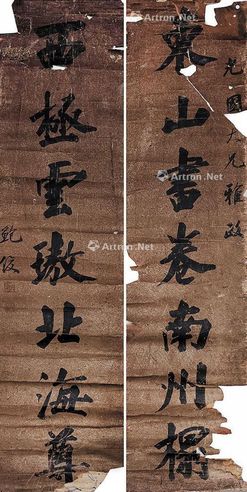 光國大兄雅政
東山書卷南州榻
西極雲璈北海尊
鮑俊
Artron.Net
Artron.Net
Artron.Net
Artron.Net